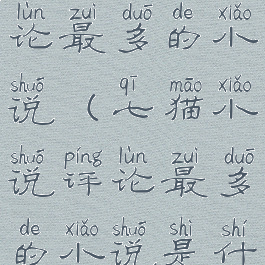 lùn zuì duō de xiǎo
论最多的小
shuō qī māo xiǎo
说（七猫小
shuō píng lùn zuì duō
说评论最多
de xiǎo shuō shì shí
的小说是什